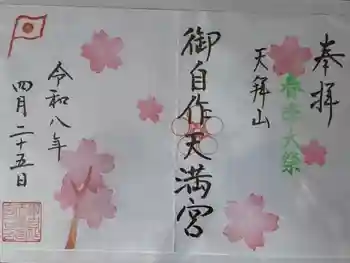 奉拝
春季大祭
天拝山
御自作天満宮
令和八年
四月二十五日